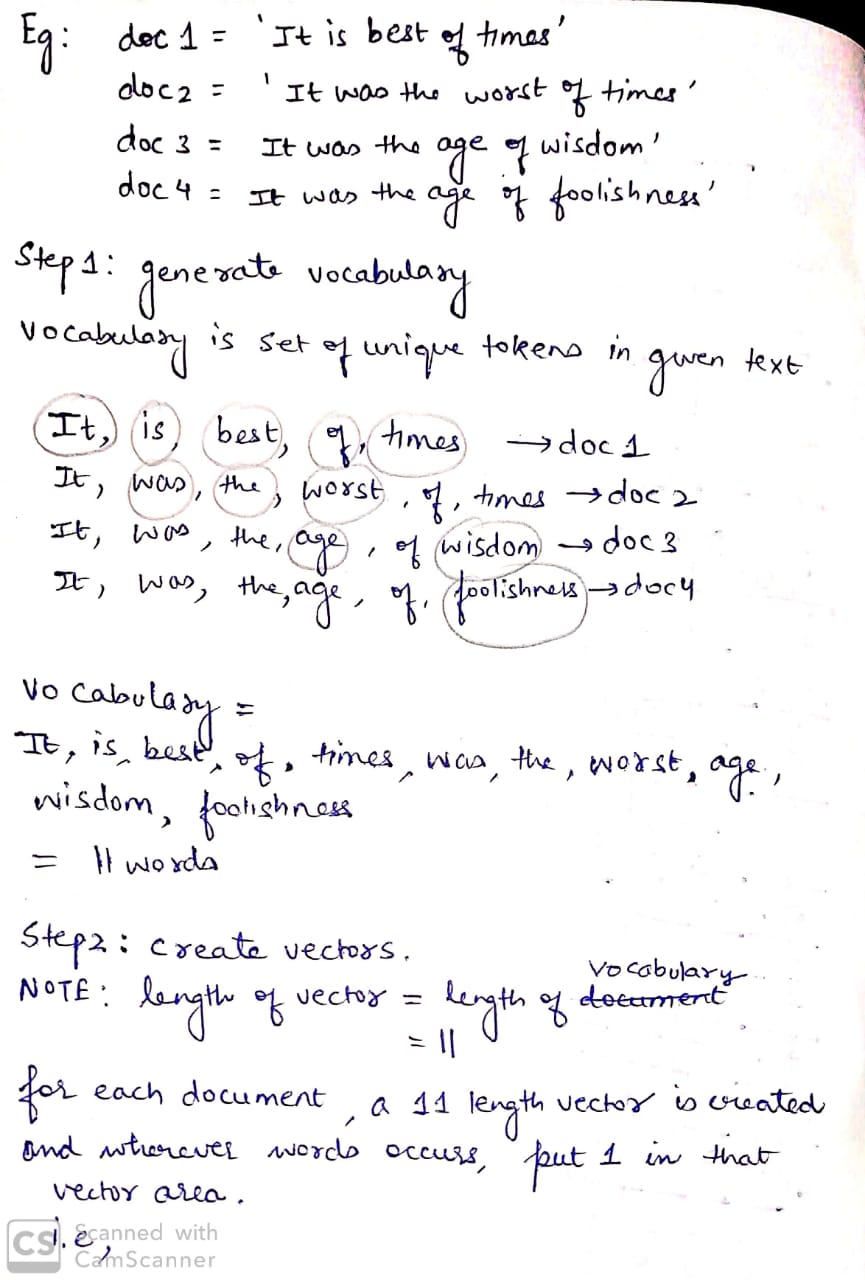 Eg: doc 1 = 'It is best of times'
doc2 = 'It was the worst of times'
doc 3 = It was the age of wisdom'
doc 4 = It was the age of foolishness'
Step 1: generate vocabulary
Vocabulary is set of unique tokens in given text
It, is, best, of, times → doc 1
It, was, the, worst, of, times → doc 2
It, was, the, age, of wisdom → doc 3
It, was, the, age, of, foolishness → doc4
Vocabulary =
It, is, best, of, times, was, the, worst, age,
wisdom, foolishness
= 11 words
Step2: create vectors.
vocabulary
NOTE: length of vector = length of document
= 11
for each document, a 11 length vector is created
and wherever words occurs, put 1 in that
vector area.
i.e,
CS Scanned with
CamScanner